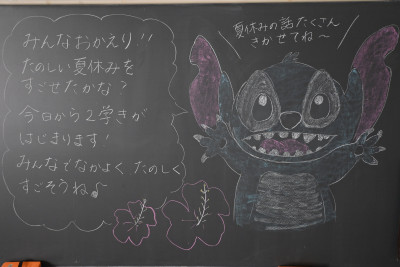 みんなおかえり!!
たのしい夏休みを
すごせたかな?
今日から2学きが
はじまります!
みんなでなかよく たのしく
すごそうね♪
夏休みの話たくさん
きかせてね〜